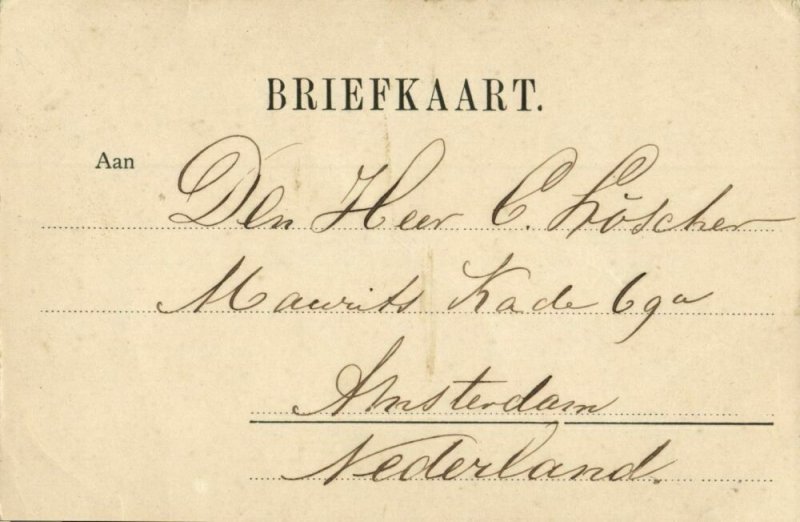 BRIEFKAART.
Aan Den Heer C. Löscher
Maurits Kade 69a
Amsterdam
Nederland.